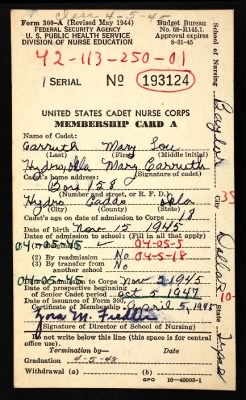 Clear 4-5-45
Form 300-A (Revised May 1944)
FEDERAL SECURITY AGENCY
U. S. PUBLIC HEALTH SERVICE
DIVISION OF NURSE EDUCATION
Budget Bureau
No. 68-R145.1.
Approval expires
8-31-45
42-113-250-01
1 SERIAL No 193124
UNITED STATES CADET NURSE CORPS
MEMBERSHIP CARD A
Name of Cadet:
Carruth Mary Lou
(Last) (First) (Middle initial)
Hydro, Okla Mary Carruth
Cadet's home address) (Signature of cadet)
Box 128
(Number and street, or R. F. D.)
Hydro Caddo Okla
(City) (County) (State)
Cadet's age on date of admission to Corps 18
Date of birth Nov 15 1945
Date of admission to school: (Fill in all that apply)
04-05-45 04-05-5
(2) By readmission No 04-5-18
(3) By transfer from another school No
04-05-45 Nov 2 1945
Date of prospective beginning of Senior Cadet period Oct 5 1947
Date of issuance of Form 300,
Certificate of Membership April 5, 1945
Zora M. Fiedler
(Signature of Director of School of Nursing)
Do not write below this line (this space is for central office use).
Termination by— Date
Graduation 4-5-48
Withdrawal (a) (b)
GPO 16-40095-1
School of Nursing Baylor
City Dallas
State Texas
35
10-